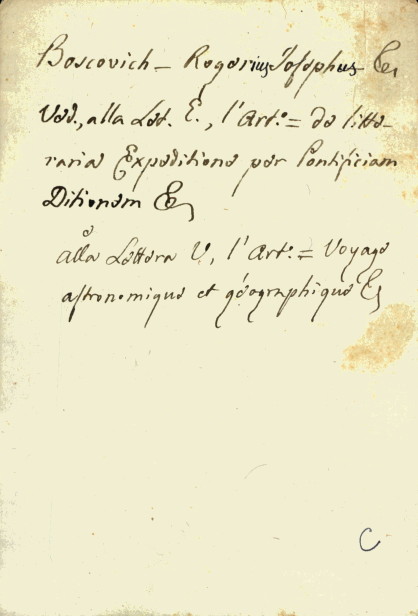 Boscovich - Rogerius Josephus &c.
Ved., alla Let. E., l'Art.º = de litte-
raria Expeditione per Pontificiam
Ditionem &c.
e alla Lettera V, l'Art.º = Voyage
astronomique et géographique &c.
C